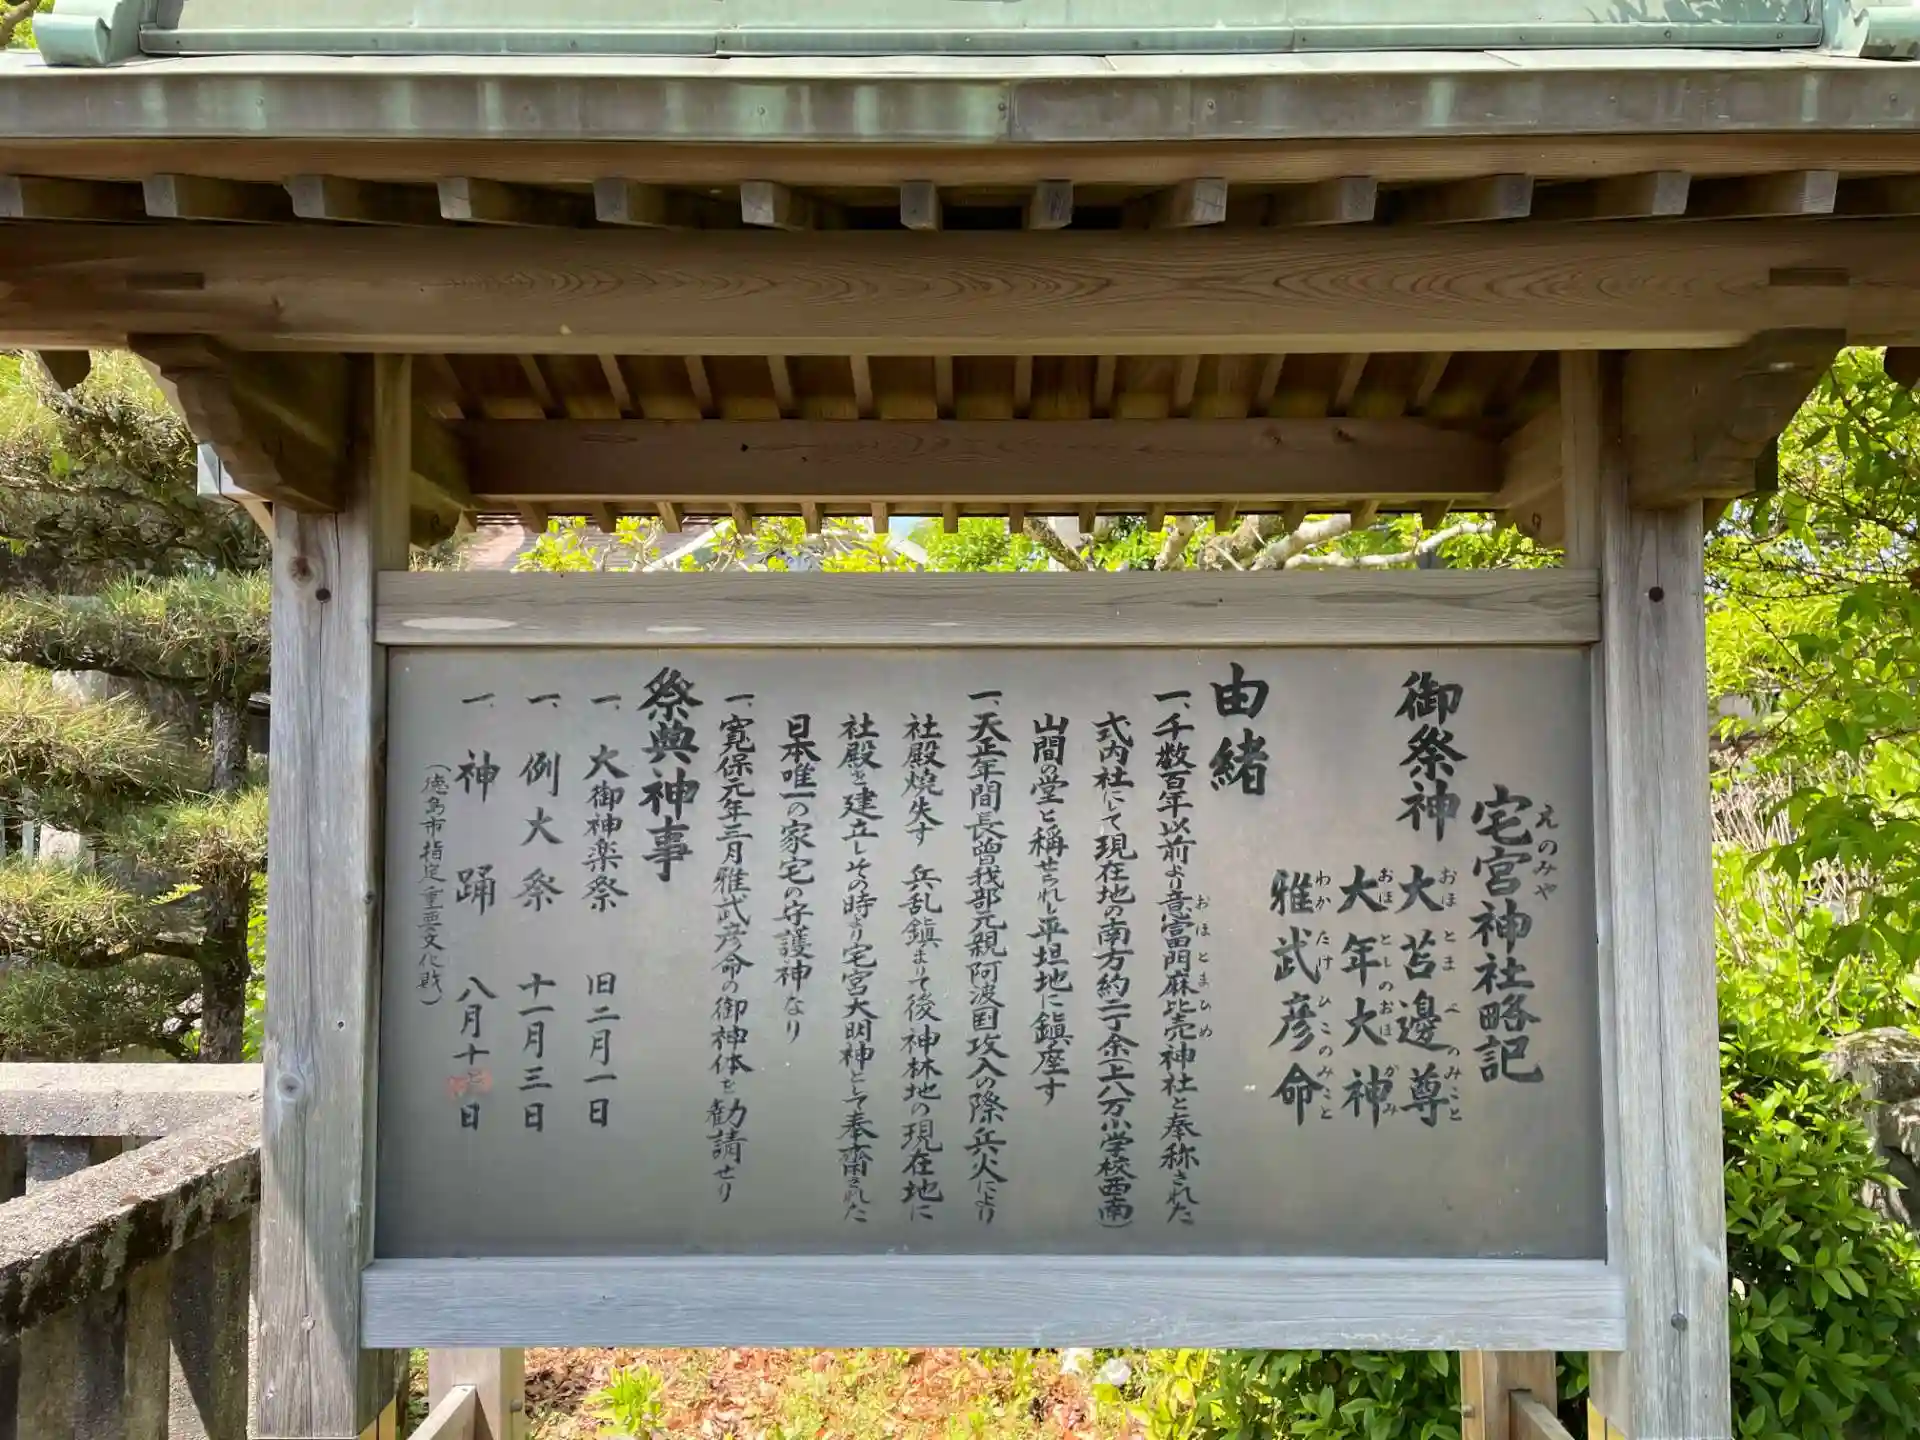 宅宮神社略記
えのみや
御祭神 大苫邊尊
おほとまべのみこと
大年大神
おほとしのおほかみ
雅武彦命
わかたけひこのみこと
由緒
一、千数百年以前より意富門麻比売神社と奉称された
おほとまひめ
式内社にして現在地の南方約二丁余(上八万小学校西南)
山間の堂と稱せられし平坦地に鎮座す
一、天正年間長曽我部元親阿波国攻入の際兵火により
社殿焼失す 兵乱鎮まりて後神林地の現在地に
社殿を建立しその時より宅宮大明神として奉齋された
日本唯一の家宅の守護神なり
一、寛保元年三月雅武彦命の御神体を勧請せり
祭典神事
一、大御神楽祭 旧二月一日
一、例大祭 十一月三日
一、神踊 八月十日
(徳島市指定重要文化財)